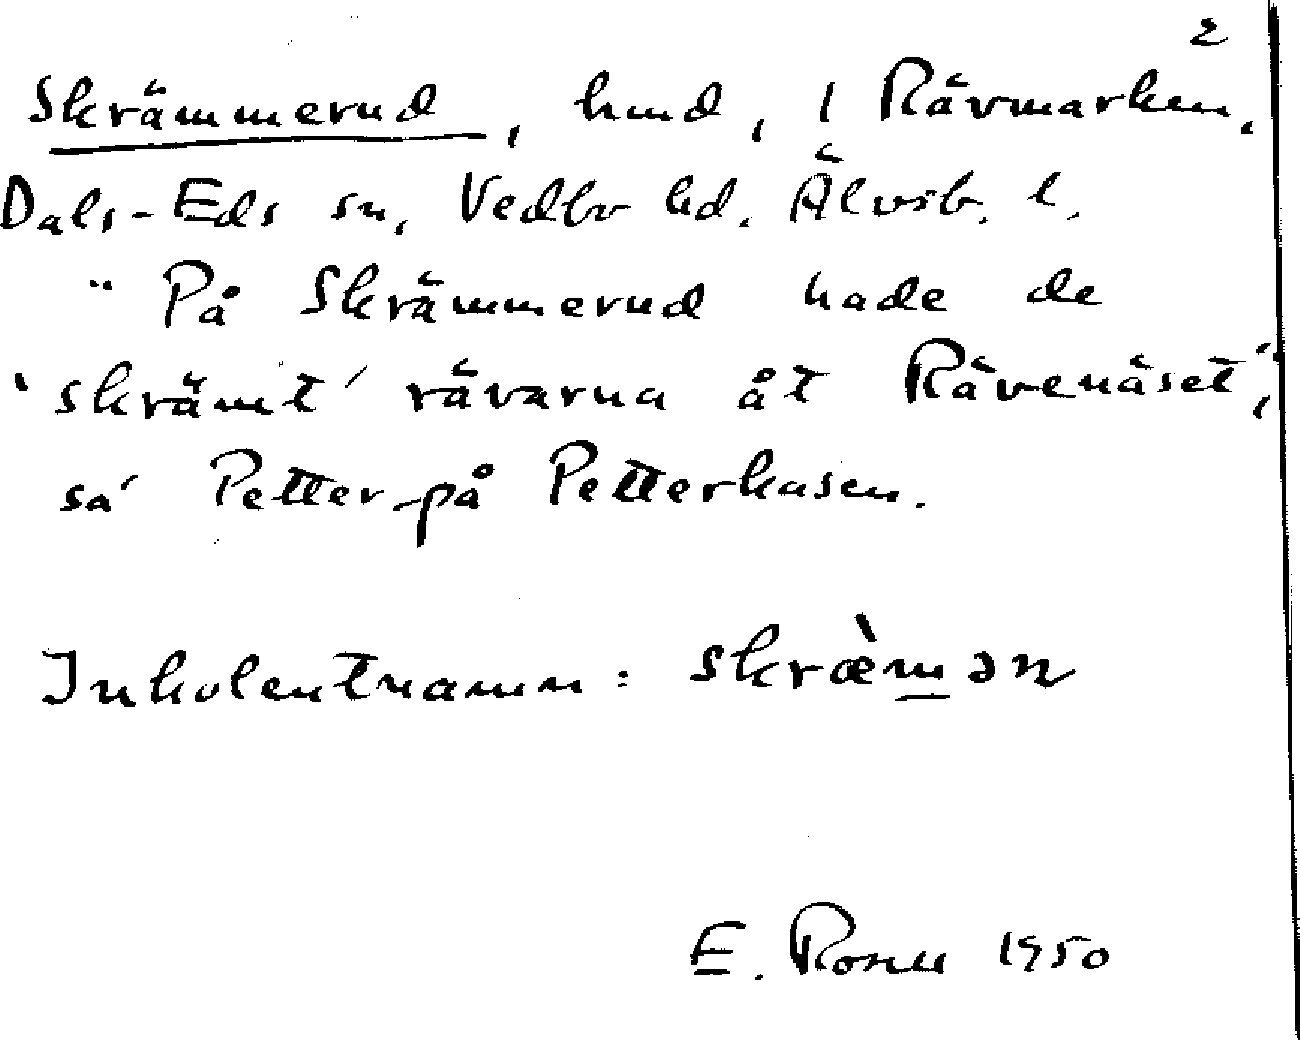 2
Skrämmerud, hmd, i Rävmarken,
Dals-Eds sn, Vedbo hd. Älvsb. l.
"På Skrämmerud hade de
'skrämt' rävarna åt Rävenäset",
sa' Petter på Petterkasen.
Inkolentnamn: skræ̀m̲ən
E. Rosell 1950